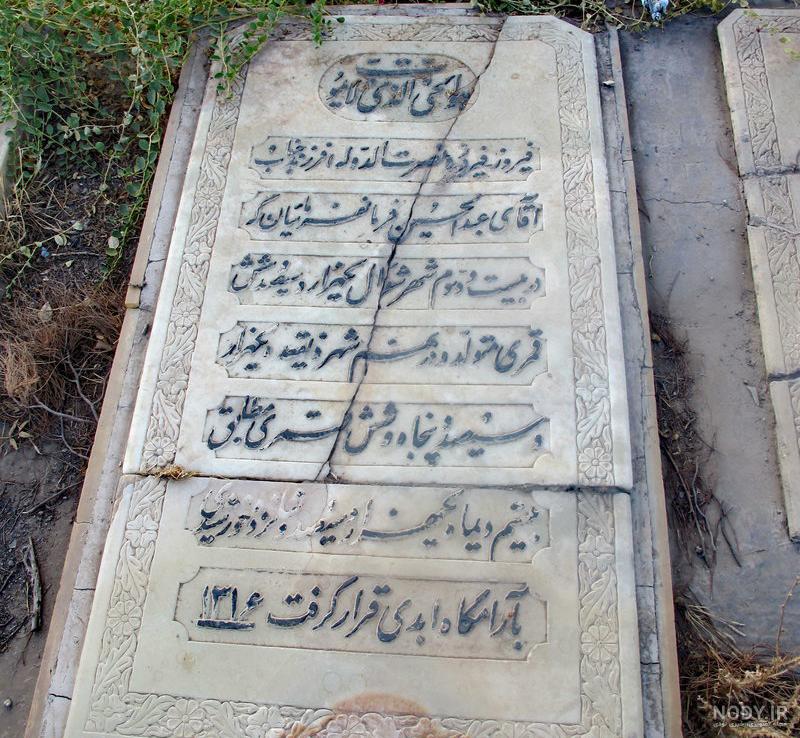 هو الحی الذی لایموت
فیروز فیروز نصرت الدوله افرزند جناب
آقای عبدالحسین فرمانفرمائیان که
در بیست و دوم شهر شوال یکهزار و سیصد و شش
قمری متولد و در هفتم شهر ذیقعده یکهزار
و سیصد و پنجاه و شش قمری مطابق
بیستم دیماه یکهزار و سیصد و شانزده خورشیدی
بآرامگاه ابدی قرار گرفت ۱۳۱۶
NODY.IR